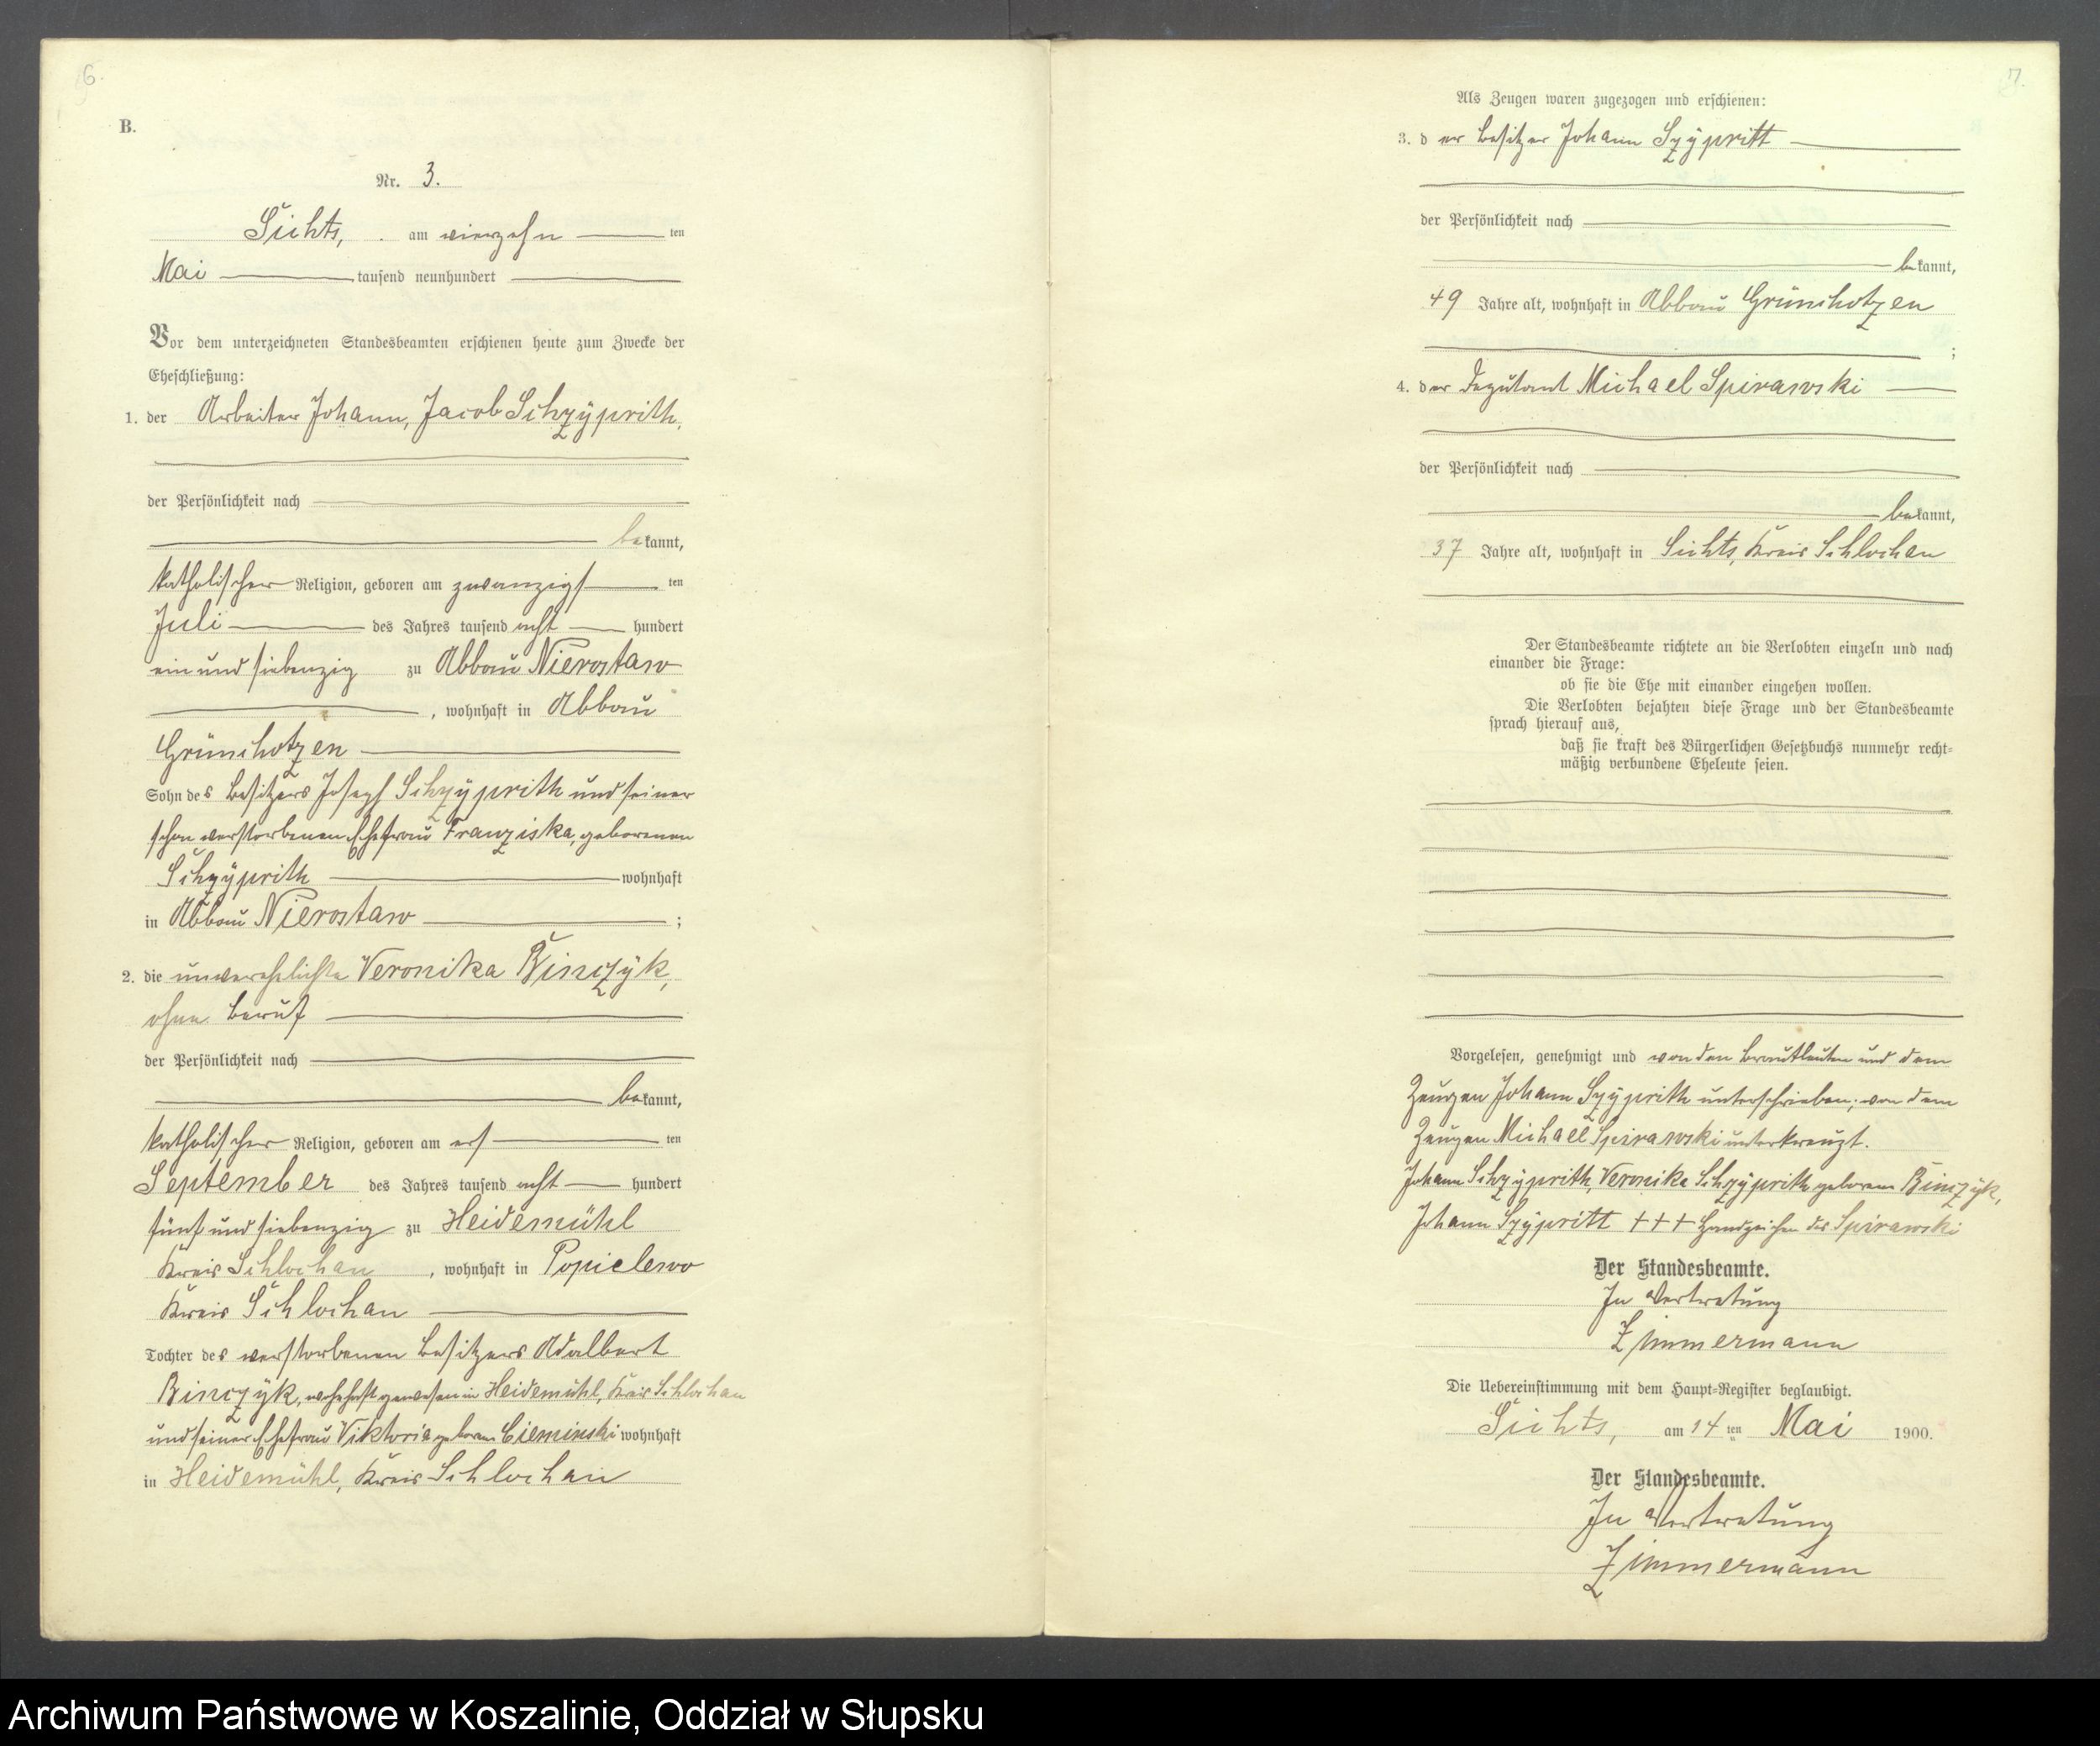 6.
B.
Nr. 3.
Sichts, am vierzehn ten
Mai tausend neunhundert
Vor dem unterzeichneten Standesbeamten erschienen heute zum Zwecke der
Eheschließung:
1. der Arbeiter Johann, Jacob Schzÿprith,
der Persönlichkeit nach
bekannt,
katholischer Religion, geboren am zwanzigsten
Juli des Jahres tausend acht hundert
ein und siebenzig zu Abbau Nierostaw
, wohnhaft in Abbau
Grünchotzen
Sohn des Besitzers Joseph Schzÿprith und seiner
schon verstorbenen Ehefrau Franziska, geborenen
Schzÿprith wohnhaft
in Abbau Nierostaw ;
2. die unverehelichte Veronika Binczÿk,
ohne Beruf
der Persönlichkeit nach
bekannt,
katholischer Religion, geboren am ersten
September des Jahres tausend acht hundert
fünf und siebenzig zu Heidemühl
Kreis Schlochau, wohnhaft in Popielewo
Kreis Schlochau
Tochter des verstorbenen Besitzers Adalbert
Binczÿk, wohnhaft gewesen in Heidemühl, Kreis Schlochau
und seiner Ehefrau Viktoria geborene Cieminski wohnhaft
in Heidemühl, Kreis Schlochau
7.
Als Zeugen waren zugezogen und erschienen:
3. der Besitzer Johann Szÿpritt
der Persönlichkeit nach
bekannt,
49 Jahre alt, wohnhaft in Abbau Grünchotzen
;
4. der Deputant Michael Spirawski
der Persönlichkeit nach
bekannt,
37 Jahre alt, wohnhaft in Sichts, Kreis Schlochau
Der Standesbeamte richtete an die Verlobten einzeln und nach
einander die Frage:
ob sie die Ehe mit einander eingehen wollen.
Die Verlobten bejahten diese Frage und der Standesbeamte
sprach hierauf aus,
daß sie kraft des Bürgerlichen Gesetzbuchs nunmehr recht-
mäßig verbundene Eheleute seien.
Vorgelesen, genehmigt und von den Brautleuten und dem
Zeugen Johann Szÿprith unterschrieben; von dem
Zeugen Michael Spirawski unterkreuzt.
Johann Schzÿprith, Veronika Schzÿprith geborene Binczÿk,
Johann Szÿpritt +++ Handzeichen des Spirawski
Der Standesbeamte.
In Vertretung
Zimmermann
Die Uebereinstimmung mit dem Haupt-Register beglaubigt.
Sichts, am 14 ten Mai 1900.
Der Standesbeamte.
In Vertretung
Zimmermann
Archiwum Państwowe w Koszalinie, Oddział w Słupsku